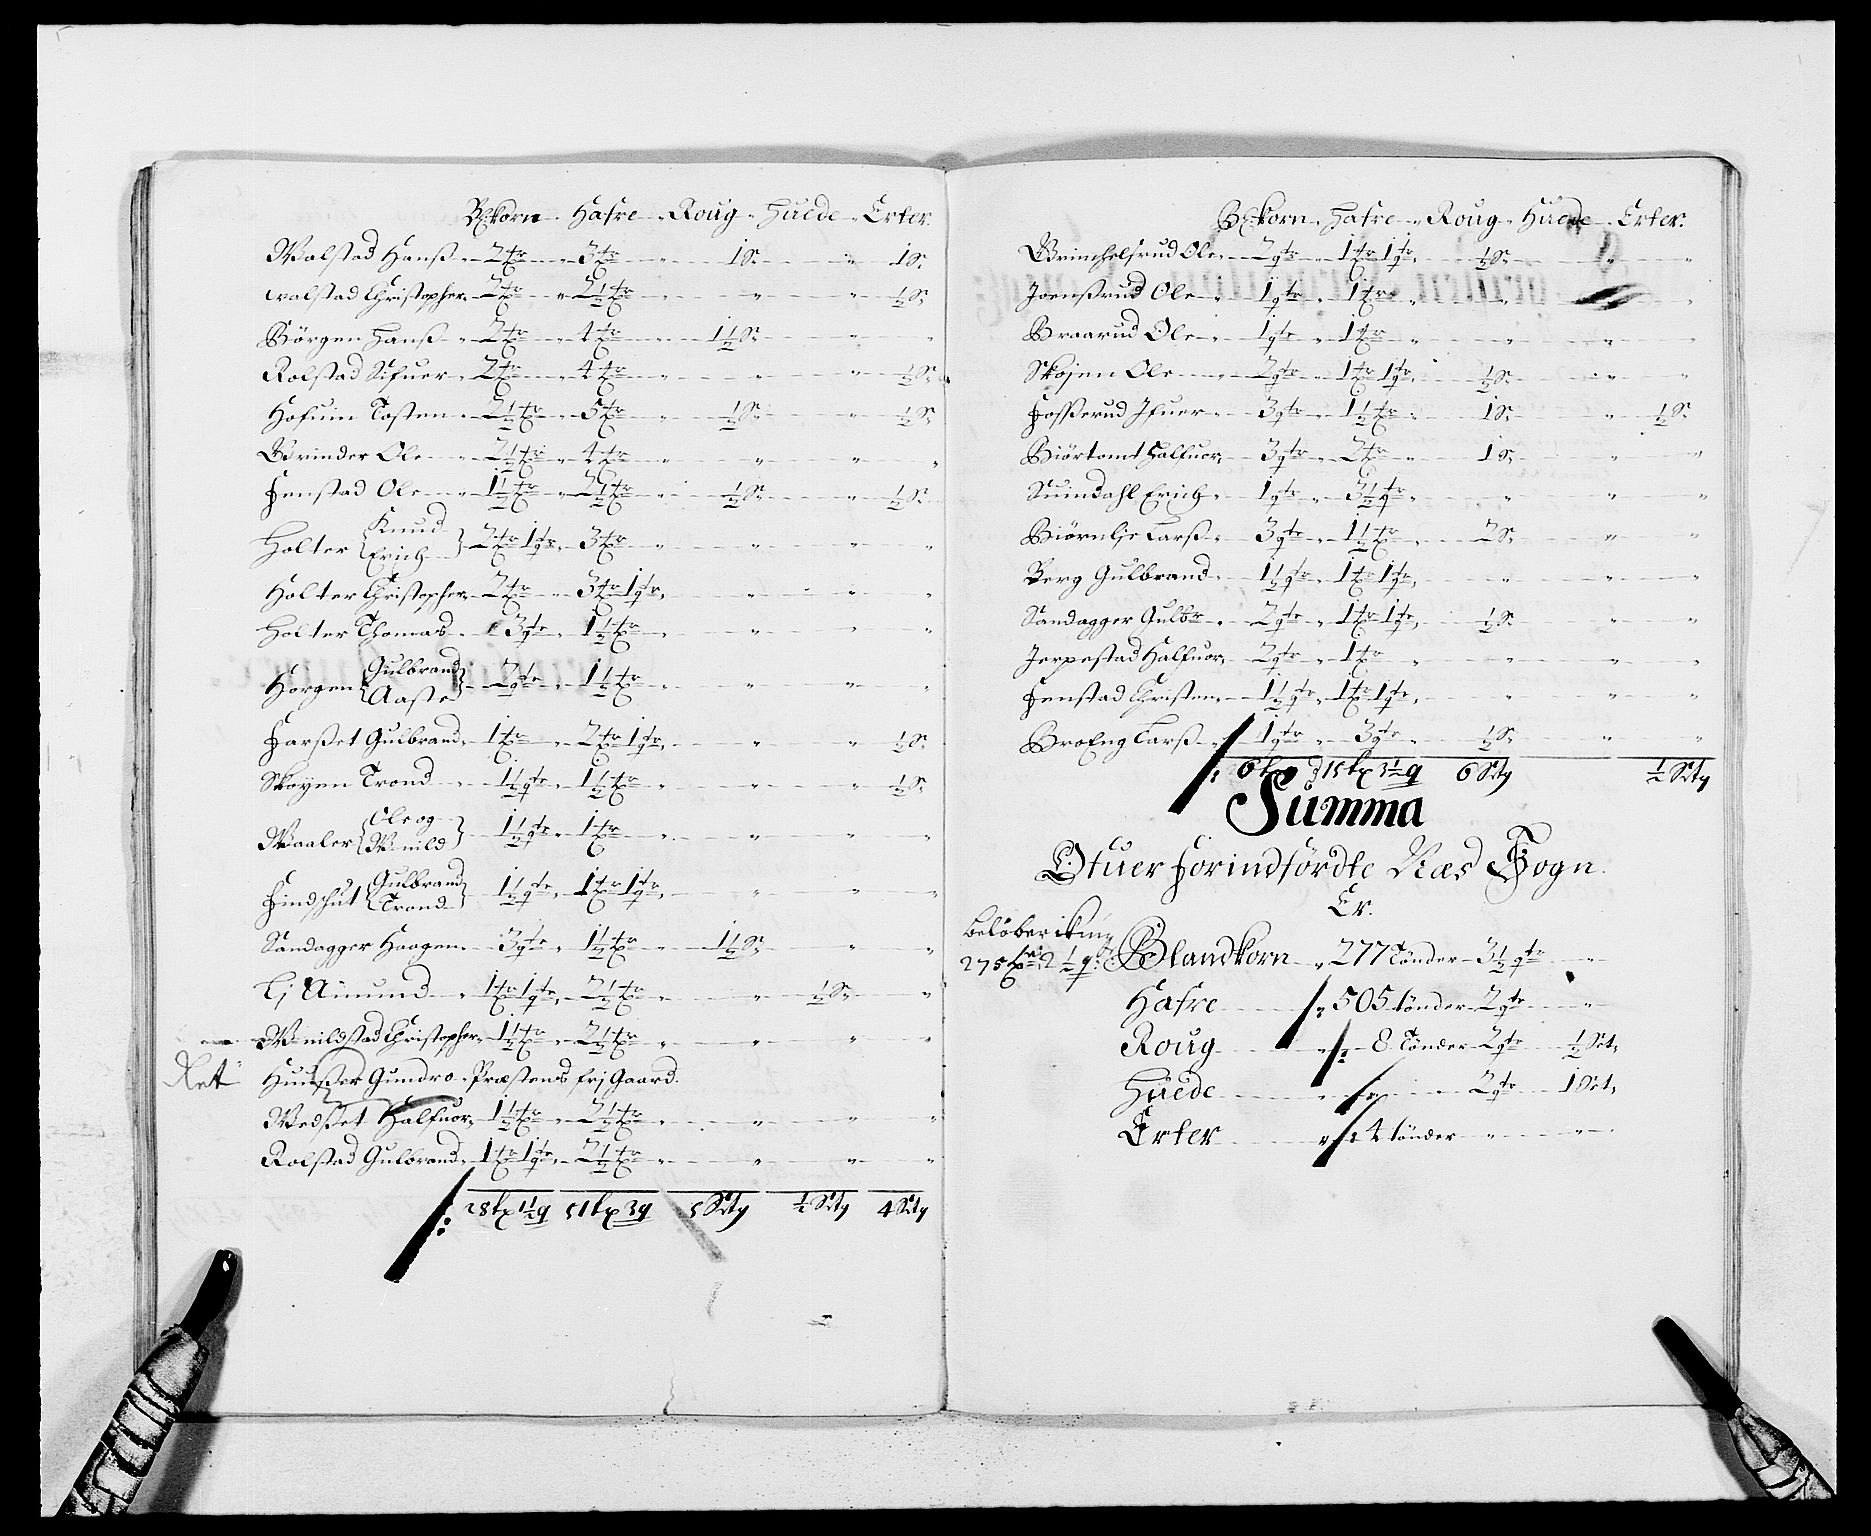 Bl:korn. Hafre. Roug. Huede. Erter.
Walstad Hanß. 2 tr 3 tr 1 S. " 1 S.
walstad Christopher. 2 tr 2½ tr " " ½ S.
Börgen Hanß. 2 tr 4 tr 1½ S. " "
Rolstad Sifuer. 2 tr 4 tr " " ½ S.
Hofuin Tosten. 2½ tr 5 tr ½ S. " ½ S.
Grinder Ole 2½ tr 4 tr " " "
Fenstad Ole 1½ tr 2½ tr ½ S. " ½ S.
Holter {Knud Erich} 2 tr 1 qtr. 3 tr " " "
Holter Christopher. 2 tr 3 tr 1 qtr. " " "
Holter Thomas. 3 qtr 1½ tr " " "
Horgen {Gulbrand Aaste} 2 qtr 1½ tr " " "
Farßet Gulbrand. 1 tr 2 tr 1 qtr. " " ½ S.
Skoyen Trond 1½ qtr 1½ tr " " ½ S.
Waaler {Ole og W nild} 1½ qtr 1 tr " " "
Findshut {Gulbrand Trond} 1½ qtr 1 tr 1 qtr. " " "
Sandagger Haagen. 3 qtr 1½ tr 1½ S. " "
Lj Amund 1 tr 1 qtr. 2½ tr " ½ S. "
W nildstad Christopher. 1½ tr 2½ tr " " "
Ret Hunßer Gundro. Præstens frj Gaard.
Wedßet Halfuor. 1½ tr 2½ tr " " "
Rolstad Gulbrand. 1 tr 1 qtr. 2½ tr " " "
28 tr 1½ q 51 tr 3 q 5 Setg ½ Setg 4 Setg
Bl:korn. Hafre. Roug. Huede. Erter.
Grimhelsrud Ole. 2 qtr 1 tr 1 qtr. ½ S. " "
Joenßrud Ole 1 qtr 1 tr " " "
Braarud Ole 1 qtr 1 tr " " "
Skojen Ole 2 qtr 1 tr 1 qtr. ½ S. " "
Foßerud Jfuer 3 qtr 1½ tr 1 S. " ½ S.
Biörtomt Halfuor. 3 qtr 2 tr 1 S. " "
Suindahl Erich. 1 qtr 3½ qtr " " "
Biörnlje Larß. 3 qtr 1½ tr 2 S. " "
Berg Gulbrand. 1½ qtr 1 tr 1 qtr. " " "
Sandagger Gulbr 2 qtr 1 tr 1 qtr. ½ S. " "
Jerpestad Halfuor. 2 qtr 1 tr " " "
Fenstad Christen. 1½ qtr 1 tr 1 qtr. " " "
BroEng Larß. 1 qtr 3 qtr ½ S. " "
6 tr 15 tr 3½ q 6 Setg ½ Setg
Summa
Ofuer forindfördte Næs Sogn.
Er.
Belöber
275 tr: 2½ q: Blandkorn 277 Tönder 3½ qtr "
Hafre 505 tönder 2 qtr "
Roug 8 Tönder 2 qtr ½ Set.
Huede " 2 qtr 1 Set.
Erter 4 tönder " "